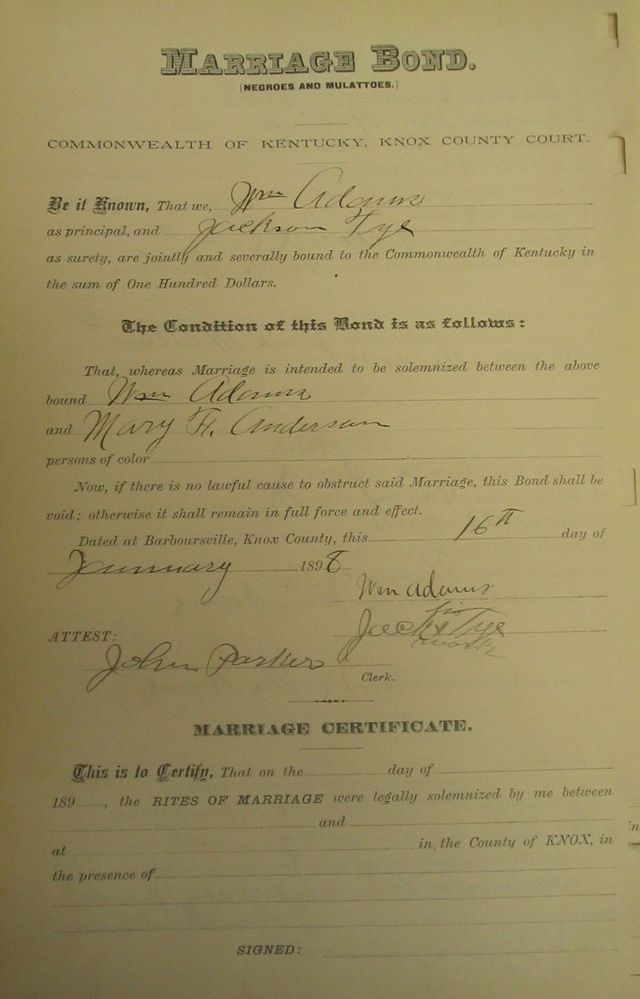 MARRIAGE BOND.
[NEGROES AND MULATTOES.]
COMMONWEALTH OF KENTUCKY, KNOX COUNTY COURT.
Be it Known, That we, Wm Adams
as principal, and Jackson Tye
as surety, are jointly and severally bound to the Commonwealth of Kentucky in
the sum of One Hundred Dollars.
The Condition of this Bond is as follows:
That, whereas Marriage is intended to be solemnized between the above
bound Wm Adams
and Mary F. Anderson
persons of color
Now, if there is no lawful cause to obstruct said Marriage, this Bond shall be
void; otherwise it shall remain in full force and effect.
Dated at Barboursville, Knox County, this 16th day of
January 1898
Wm Adams
his
Jack x Tye
mark
ATTEST:
John Parker
Clerk.
MARRIAGE CERTIFICATE.
This is to Certify, That on the day of
189 , the RITES OF MARRIAGE were legally solemnized by me between
and
at in the County of KNOX, in
the presence of
SIGNED: